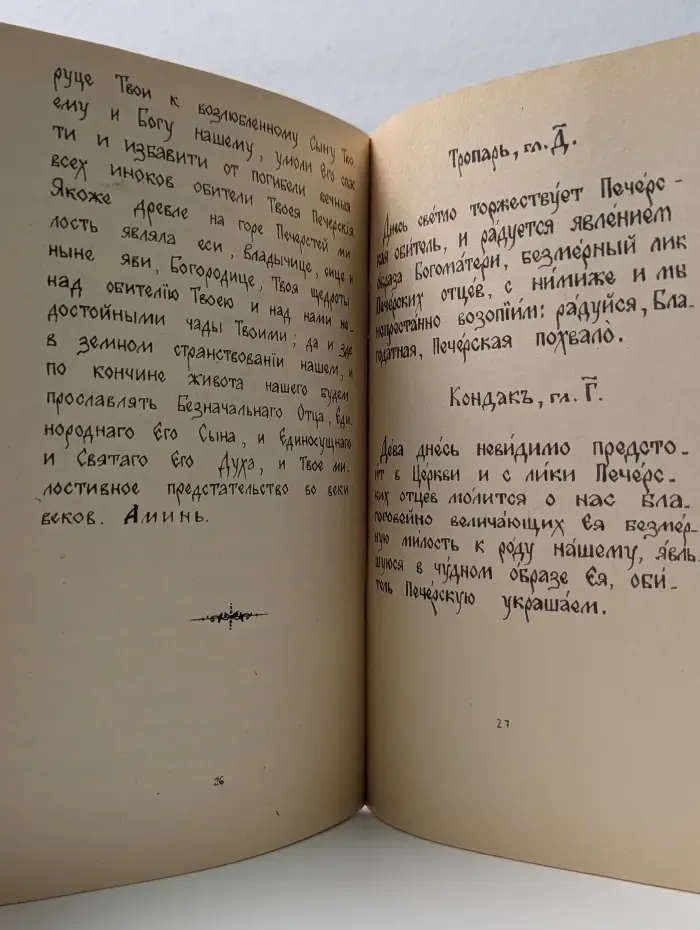 руце Твои к возлюбленному Сыну Тво-
ему и Богу нашему, умоли Его спас-
ти и избавити от погибели вечныя
всех иноков обители Твоея Печерскія
Якоже древле на горе Печерстей ми
лость являла еси, Владычице, сице и
ныне яви, Богородице, Твоя щедроты
над обителію Твоею и над нами не-
достойными чады Твоими; да и зде
в земном странствованіи нашем, и
по кончине живота нашего будем
прославлять Безначальнаго Отца, Еди
нороднаго Его Сына, и Единосущнаго
и Святаго Его Духа, и Твое ми-
лостивное предстательство во веки
веков. Аминь.
26
Тропарь, гл. Д҃.
Днесь све́тло торжеству́ет Пече́рс-
кая оби́тель, и ра́дуется явле́нием
о́браза Богома́тери, безме́рный лик
Пече́рских отце́в, с ни́миже и мы
непреста́нно возопіи́м: ра́дуйся, Бла-
года́тная, Пече́рская похвало̀.
Кондакъ, гл. Г҃.
Де́ва дне́сь неви́димо предсто-
и́т в Це́ркви и с ли́ки Пече́рс-
ких отце́в мо́лится о нас бла-
гогове́йно велича́ющих Ея̀ безме́р-
ную ми́лость к ро́ду на́шему, я́вль-
шуюся в чу́дном о́бразе Ея̀, оби́-
тель Пече́рскую украша́ем.
27